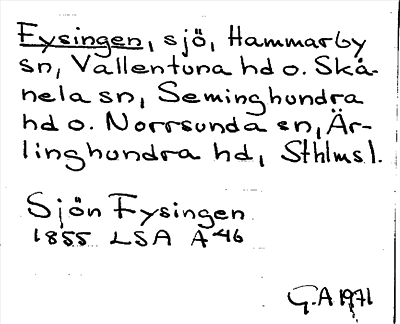 Fysingen, sjö, Hammarby
sn, Vallentuna hd o. Skå-
nela sn, Seminghundra
hd o. Norrsunda sn, Är-
linghundra hd, Sthlms l.
Sjön Fysingen
1855 LSA A 46
G.A 1971